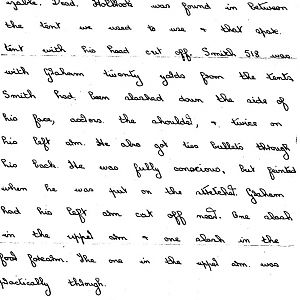 Dead. Holbbock was found in between
the tent we used to use & that spot.
tent with his head cut off. Smith 518 was
with Graham twenty yards from the tents
Smith had been slashed down the side of
his face, across the shoulder, & twice on
his left arm. He also got two bullets through
his back. He was fully conscious, but fainted
when he was put on the stretcher. Graham
had his left arm cut off near. One slash
in the upper arm & one slash in the
fore forearm. The one in the upper arm was
practically through.